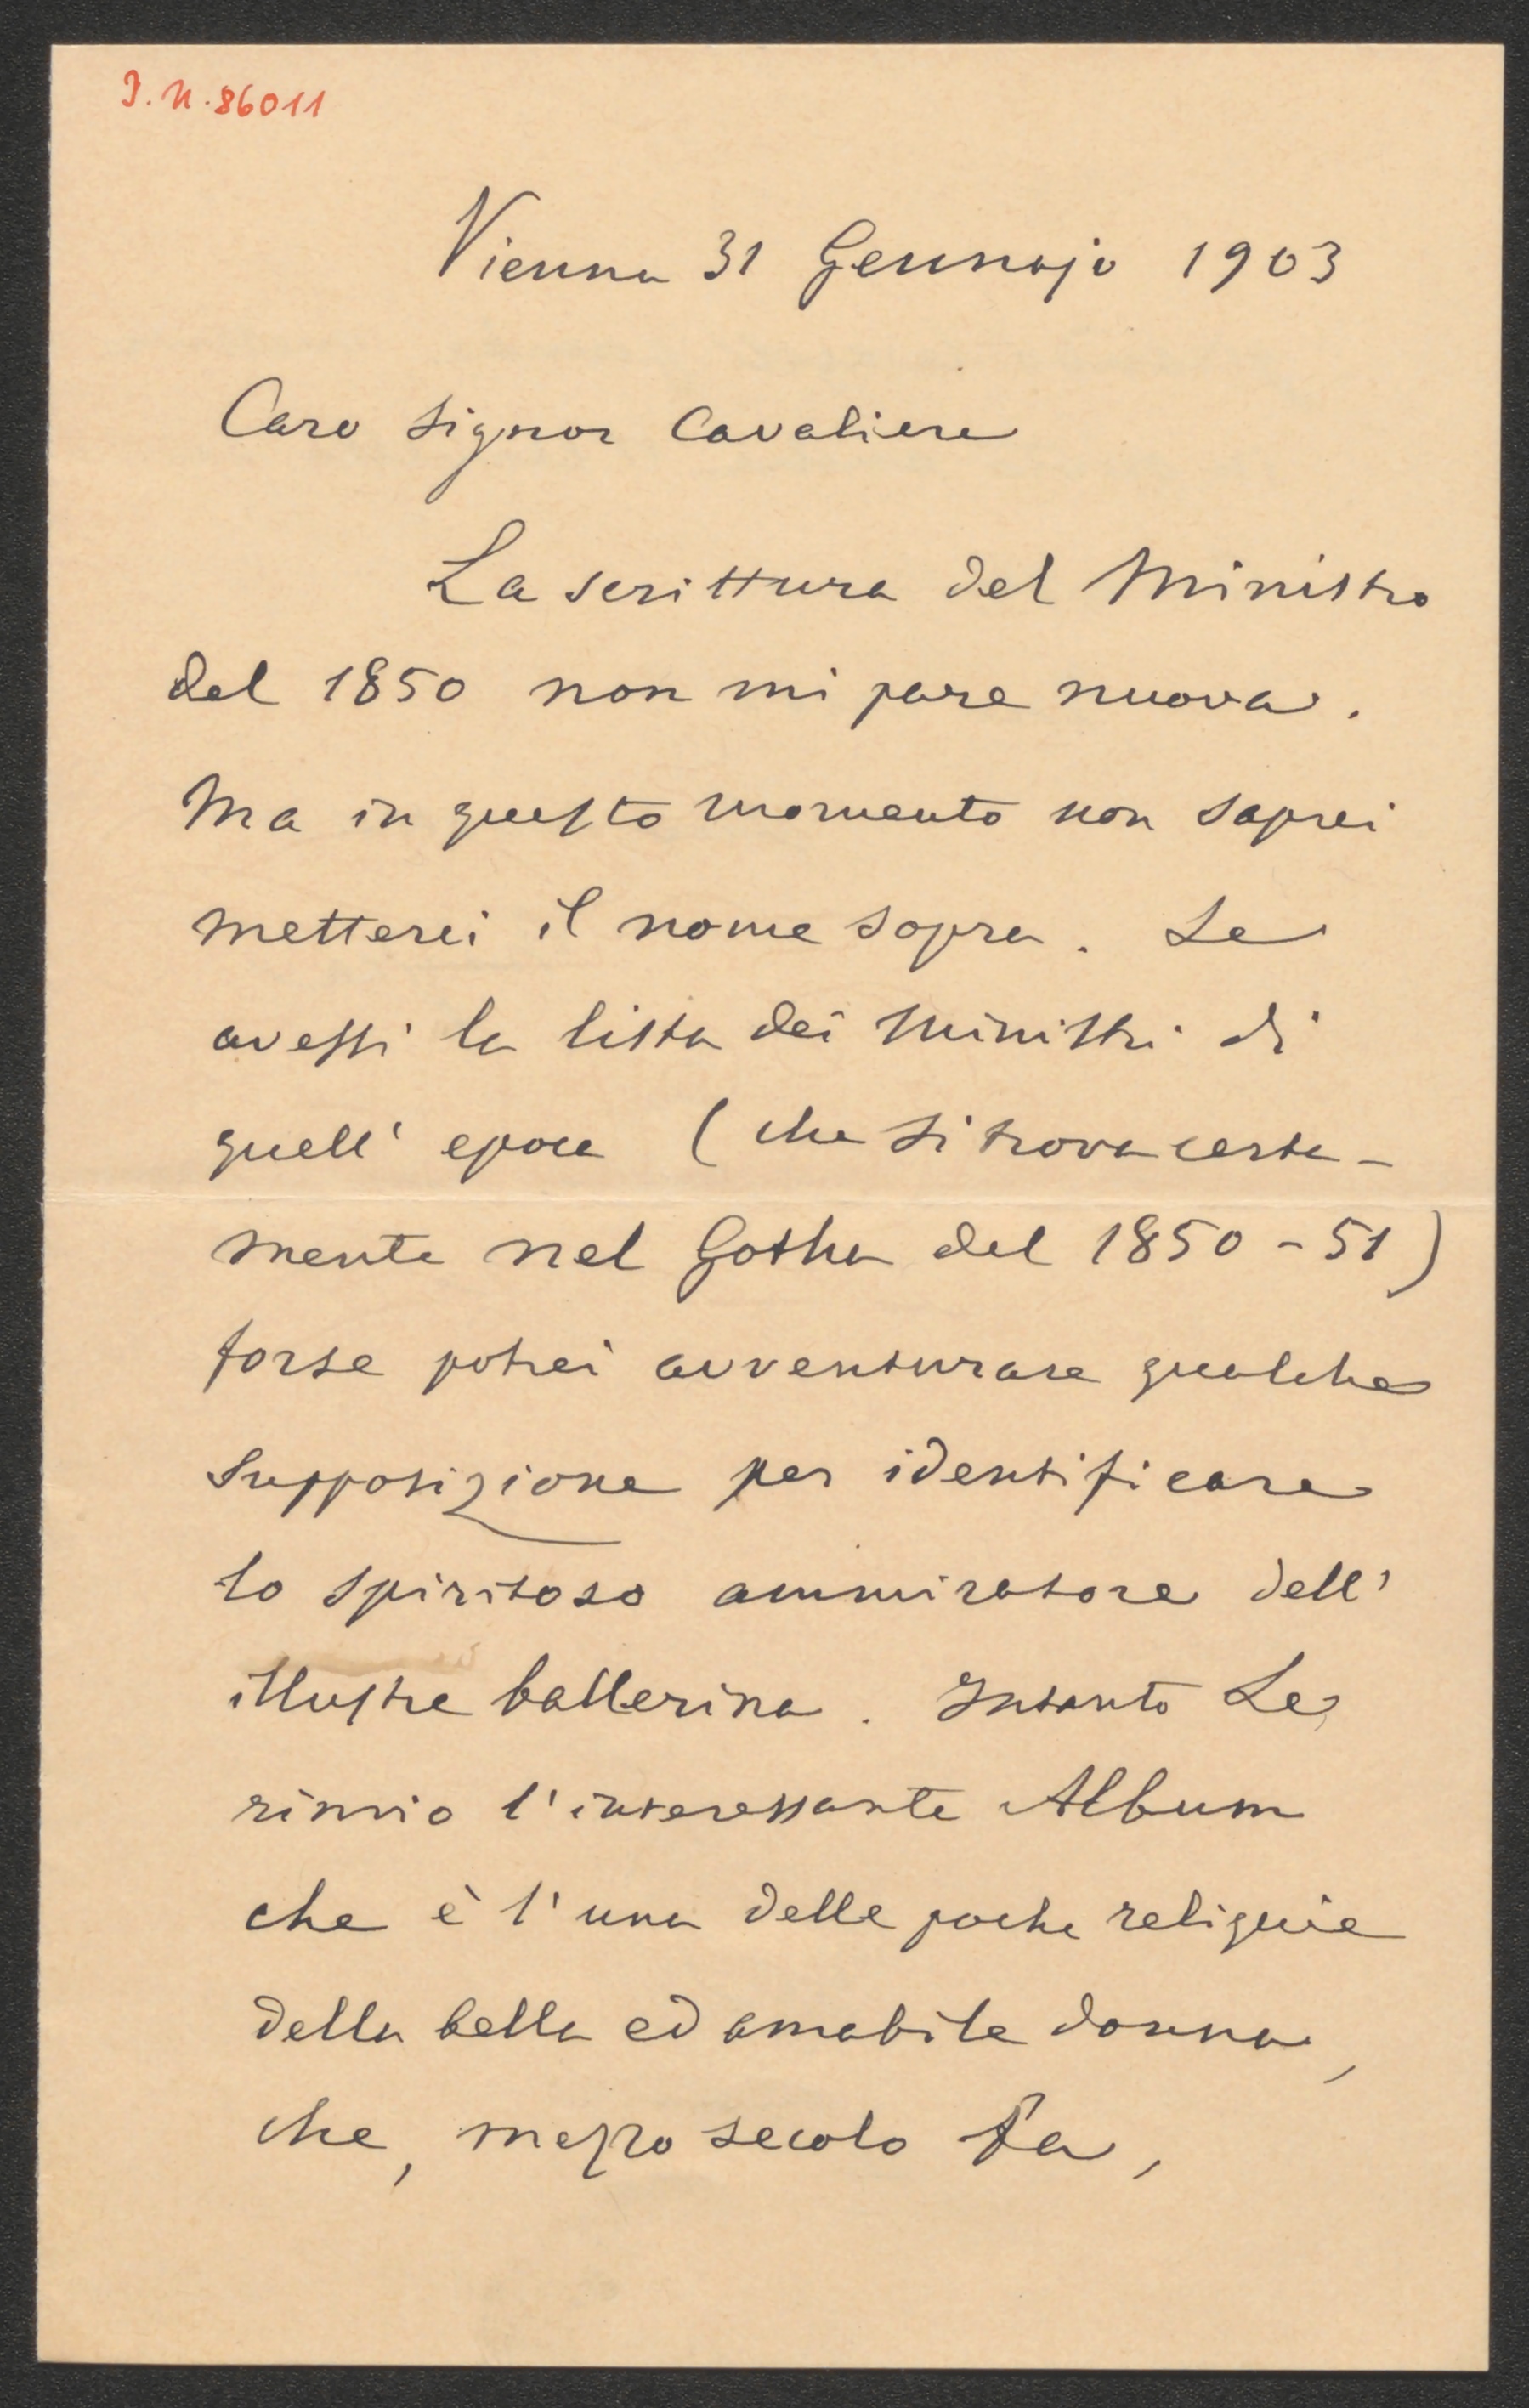 J.N. 86011
Vienna 31 Gennajo 1903
Caro Signor Cavaliere
La scrittura del Ministro
del 1850 non mi pare nuova.
Ma in questo momento non saprei
metterci il nome sopra. Se
avessi la lista dei Ministri di
quell' epoca (che si trova certa-
mente nel Gotha del 1850-51)
forse potrei avventurare qualche
supposizione per identificare
lo spiritoso ammiratore dell'
illustre ballerina. Intanto Le
rinvio l'interessante Album
che è l'una delle poche reliquie
della bella ed amabile donna,
che, mezzo secolo fa,